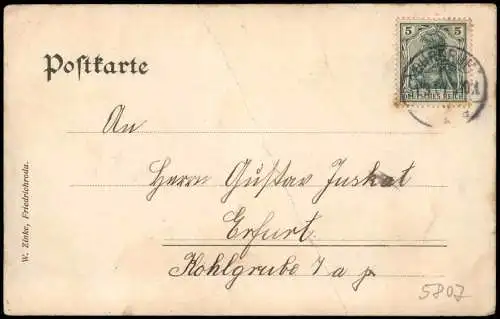 Postkarte
5 5
DEUTSCHES REICH
An
Herrn Gustav Juskat
Erfurt.
Kohlgrube 7 a p.
5807
W. Zinke, Friedrichroda.